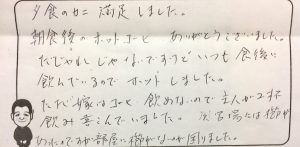 夕食のカニ 満足しました。
朝食後のホットコーヒ ありがとうございました。
だじゃれじゃないですけど いつも食後に
飲んでいるので ホットしました。
ただ嫁はコーヒ 飲めないので主人が2杯
飲み喜こんでいました。 大浴場には櫛が
のですが部屋に櫛がないのが困りました。